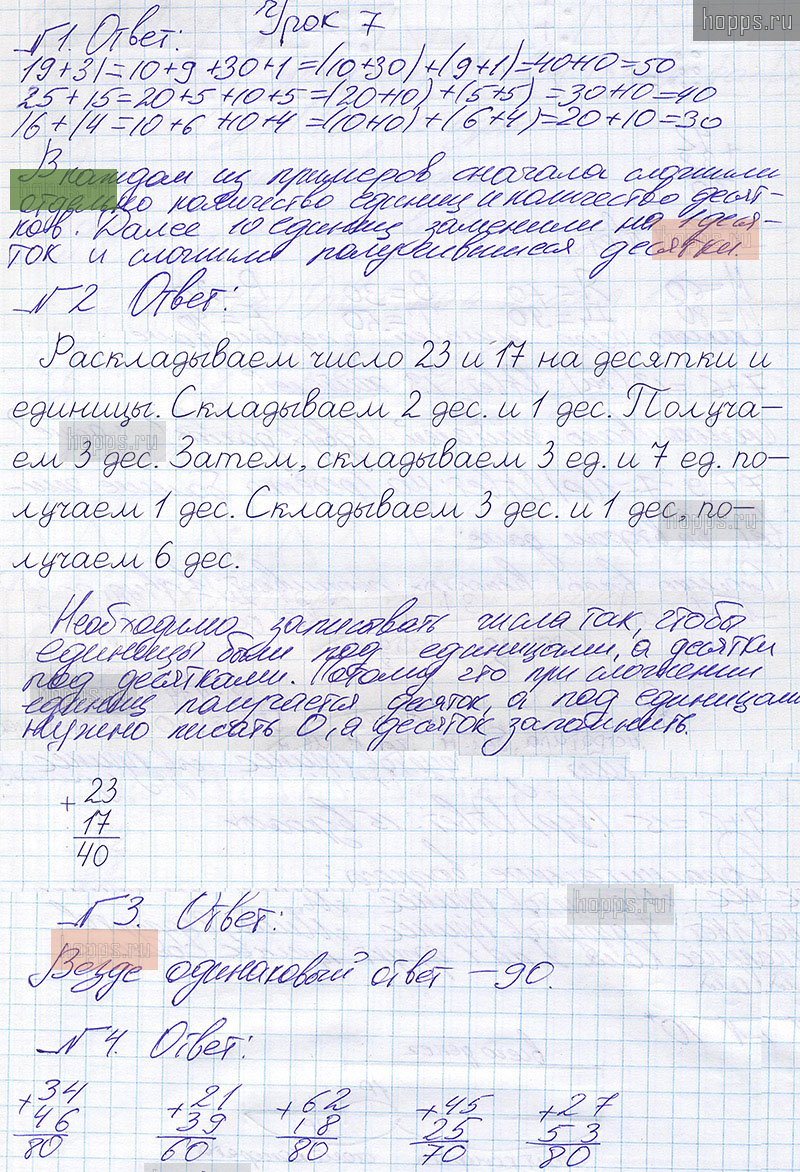 hopps.ru
Урок 7
№1. Ответ:
19+31=10+9+30+1=(10+30)+(9+1)=40+10=50
25+15=20+5+10+5=(20+10)+(5+5)=30+10=40
16+14=10+6+10+4=(10+10)+(6+4)=20+10=30
В каждом из примеров сначала сложили
отдельно количество единиц и количество десят-
ков. Далее 10 единиц заменили на 1 деся-
ток и сложили получившиеся десятки.
№2 Ответ:
Раскладываем число 23 и 17 на десятки и
единицы. Складываем 2 дес. и 1 дес. Получа-
ем 3 дес. Затем, складываем 3 ед. и 7 ед. по-
лучаем 1 дес. Складываем 3 дес. и 1 дес, по-
лучаем 6 дес.
hopps.ru
hopps.ru
Необходимо записывать числа так, чтобы
единицы были под единицами, а десятки
под десятками. Потому что при сложении
единиц получается десяток, а под единицами
нужно писать 0, а десяток запомнить.
+ 23
17
40
hopps.ru
№3. Ответ:
Везде одинаковый ответ – 90.
№4. Ответ:
+34 +21 +62 +45 +27
46 39 18 25 53
80 60 80 70 80